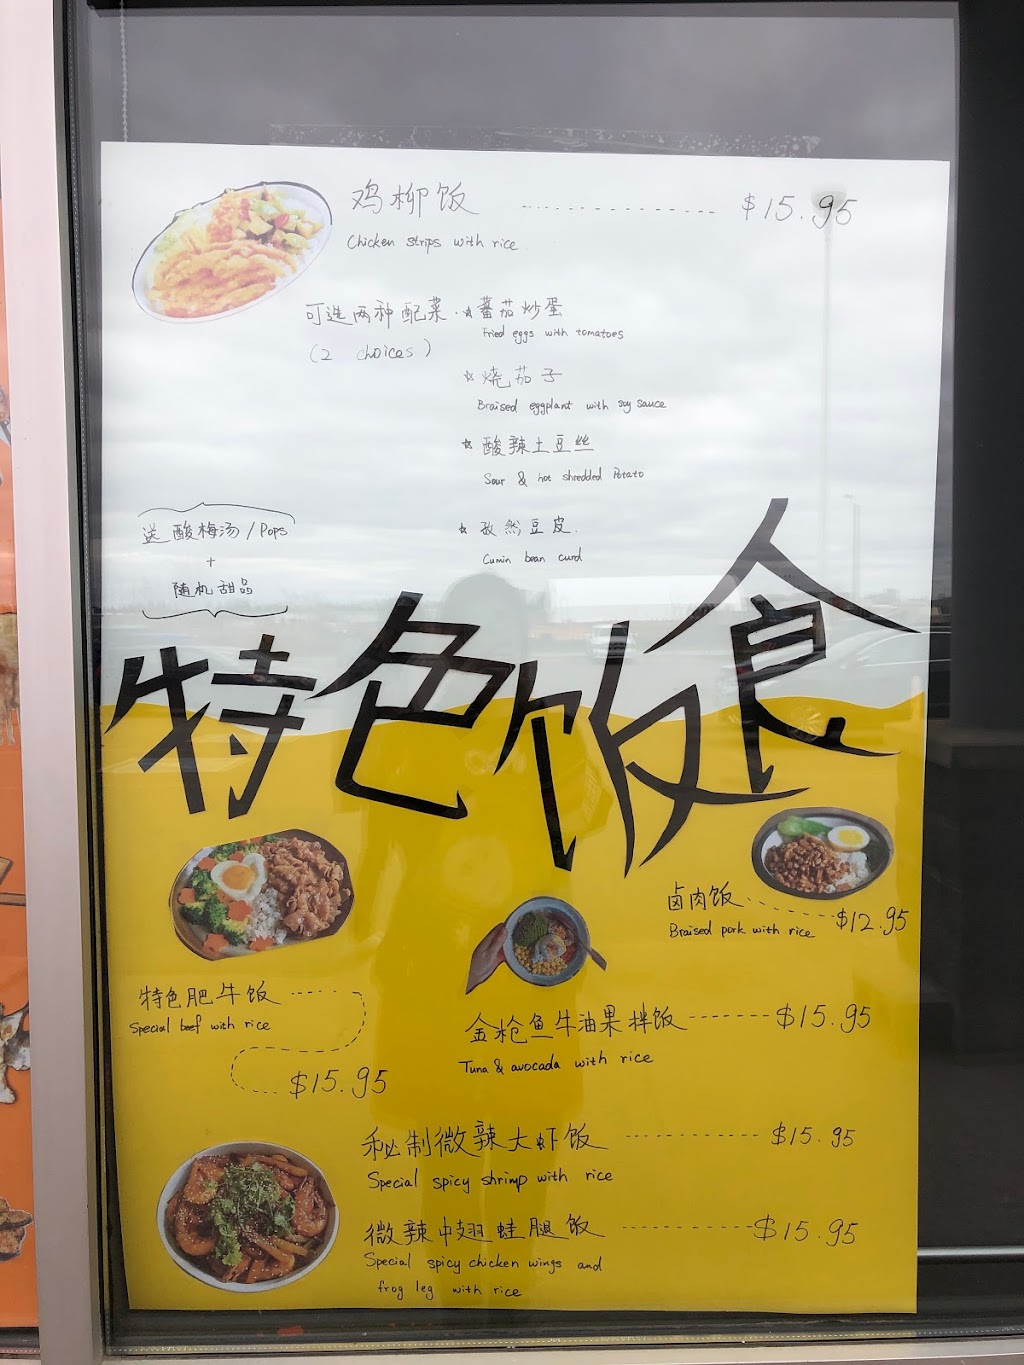 鸡柳饭 ------------ $15.95
Chicken strips with rice
可选两种配菜.
(2 choices)
☆ 蕃茄炒蛋
Fried eggs with tomatoes
☆ 烧茄子
Braised eggplant with soy sauce
☆ 酸辣土豆丝
Sour & hot shredded Potato
☆ 孜然豆皮.
Cumin bean curd
送酸梅汤/Pops
+
随机甜品
特色饭食
卤肉饭 ------ $12.95
Braised pork with rice
特色肥牛饭
Special beef with rice
$15.95
金枪鱼牛油果拌饭 ------ $15.95
Tuna & avocado with rice
秘制微辣大虾饭 ---------- $15.95
Special spicy shrimp with rice
微辣中翅蛙腿饭 ---------- $15.95
Special spicy chicken wings and
frog leg with rice